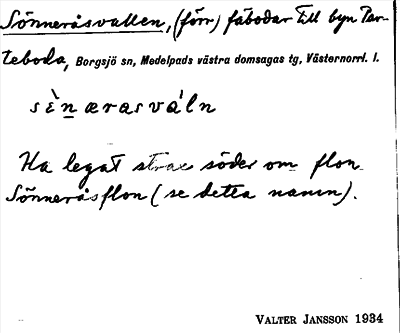 Sönneråsvallen, (förr) fäbodar till byn Par-
teboda, Borgsjö sn, Medelpads västra domsagas tg, Västernorrl. l.
sènærasváln
Ha legat strax söder om flon
Sönneråsflon (se detta namn).
VALTER JANSSON 1934